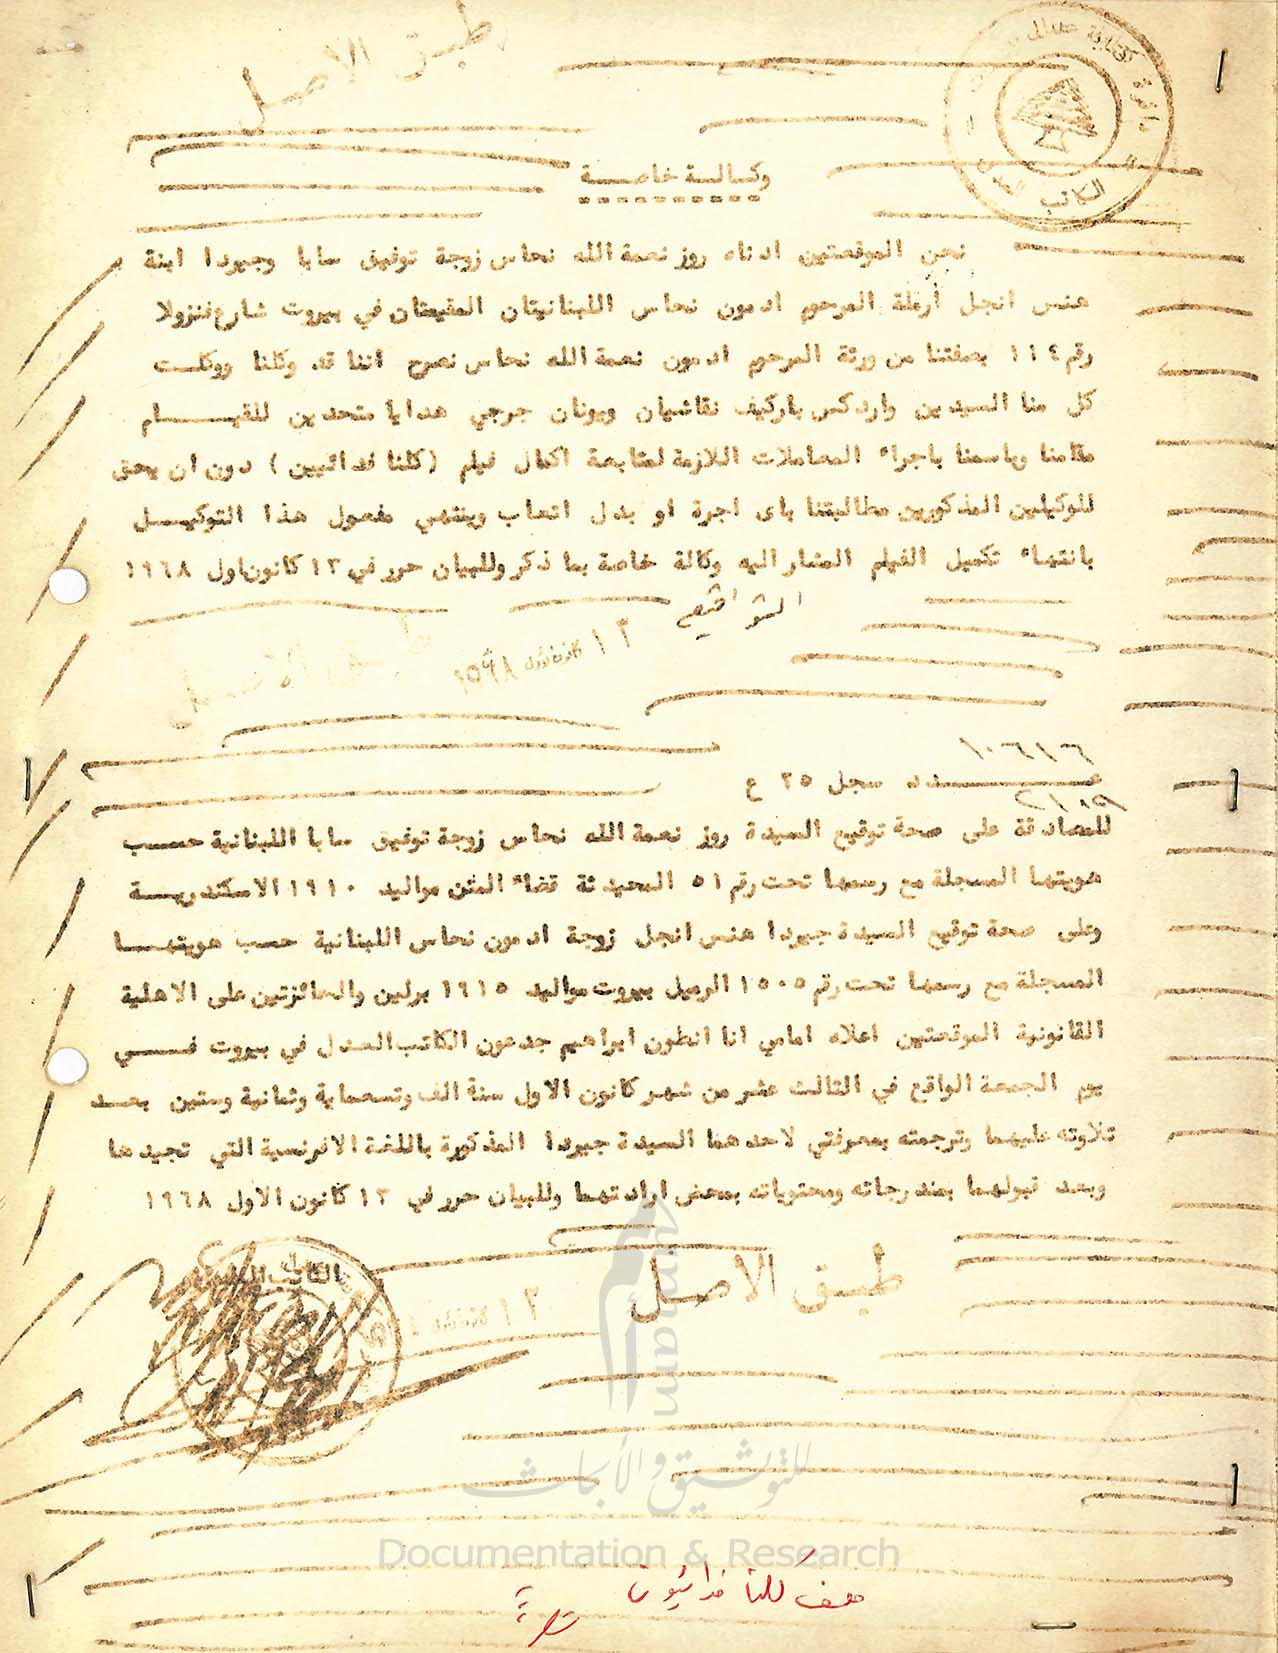 طبق الاصل
وكالة خاصة
نحن الموقعتين ادناه روز نعمة الله نحاس زوجة توفيق سابا وجيردا ابنة
هنس انجل أرملة المرحوم ادمون نحاس اللبنانيتان المقيمتان في بيروت شارع فنزولا
رقم ١١٤ بصفتنا من ورثة المرحوم ادمون نعمة الله نحاس نصرح اننا قد وكلنا ووكلت
كل منا السيدين واردكس باركيف نقاشيان ويونان جرجي هدايا متحدين للقيام
مقامنا وباسمنا باجراء المعاملات اللازمة لمتابعة اكمال فيلم (كلنا فدائيين) دون ان يحق
للوكيلين المذكورين مطالبتنا باى اجرة او بدل اتعاب وينتهي مفعول هذا التوكيل
بانتهاء تكميل الفيلم المشار اليه وكالة خاصة بما ذكر وللبيان حرر في ١٣ كانون اول ١٩٦٨
التواقيع
١٣ كانون الأول
طبق الاصل
١٠٦١٦
عدد سجل ٢٥ ع
للمصادقة على صحة توقيع السيدة روز نعمة الله نحاس زوجة توفيق سابا اللبنانية حسب
هويتها المسجلة مع رسمها تحت رقم ٥١ المحيدثة قضاء المتن مواليد ١٩١٠ الاسكندرية
وعلى صحة توقيع السيدة جيردا هنس انجل زوجة ادمون نحاس اللبنانية حسب هويتها
المسجلة مع رسمها تحت رقم ١٥٠٥ الرميل بيروت مواليد ١٩١٥ برلين والحائزتين على الاهلية
القانونية الموقعتين اعلاه امامي انا انطون ابراهيم جدعون الكاتب العدل في بيروت في
يوم الجمعة الواقع في الثالث عشر من شهر كانون الاول سنة الف وتسعماية وثمانية وستين بعد
تلاوته عليهما وترجمته بمعرفتي لاحدهما السيدة جيردا المذكورة باللغة الافرنسية التي تجيدها
وبعد قبولهما بمندرجاته ومحتوياته بمحض ارادتهما وللبيان حرر في ١٣ كانون الاول ١٩٦٨
طبق الاصل
الكاتب العدل
أمم umam
للتوثيق والأبحاث
Documentation & Research
كلنا فدائيون